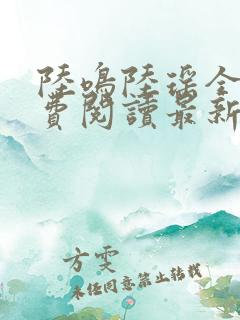 陸鳴陸瑶全
費閱讀最新
方雯
未经同意禁止转载